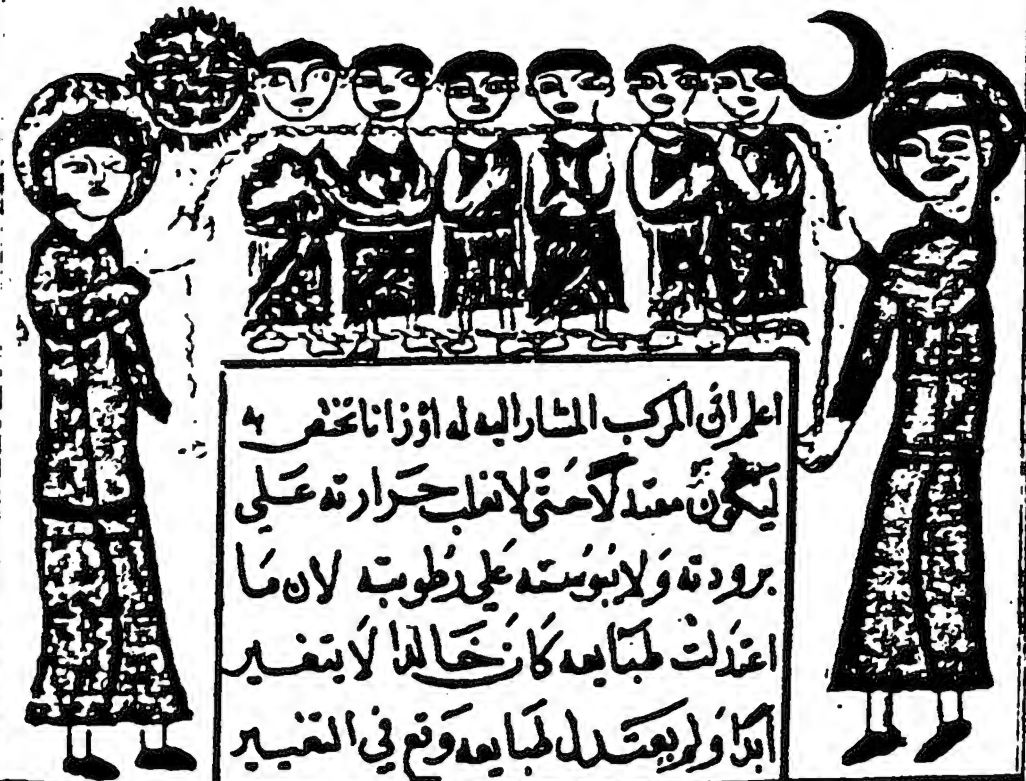 اعلم ان المركب المشار اليه له اوزانا تختص به
ليكون معتدلاً حتى لا تغلب حرارته على
برودته ولا يبوسته على رطوبته لان ما
اعتدلت طبايعه كان خالدا لا يتغير
ابدا ولم يعتدل طبايعه وقع في التغيير